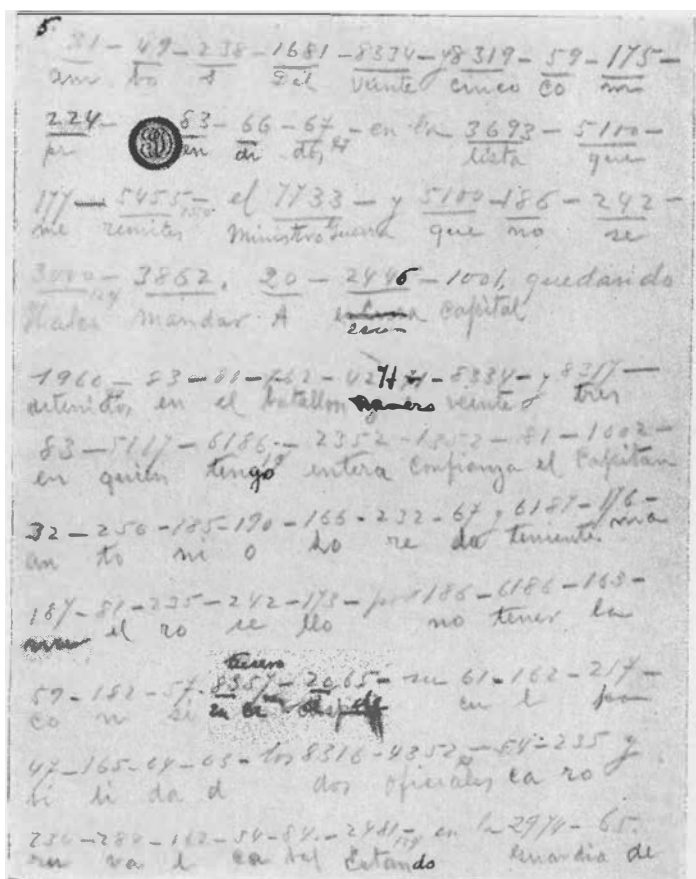 5
31 - 49 - 238 - 1681 - 8334 - y 8319 - 59 - 175 -
am bo s Del veinte cinco co m
224 - 83 - 66 - 67 - en la 3693 - 5100 -
pr en di dos lista que
177 - 5455 - el 7733 - y 5100 - 186 - 242 -
me remites Ministro Guerra que no se
3000 - 3862. 20 - 2446 - 1001, quedando
mandar A Capital
1960 - 83 - 81 - 762 - 42 - 71 - 8334 - y 8317 -
detenidos en el batallon numero veinte y tres
83 - 5117 - 6186 - 2352 - 1352 - 81 - 1002 -
en quien tengo entera confianza el Capitan
32 - 250 - 185 - 190 - 166 - 232 - 67 y 6187 - 176 -
an to ni o lo re do teniente ma
187 - 81 - 235 - 242 - 173 - por 186 - 6186 - 163 -
el ro se llo no tener la
59 - 182 - 57 - 8357 - 2065 - su 61 - 162 - 217 -
co n si cu l po
47 - 165 - 64 - 63 - los 8316 - 4352 - 54 - 235 y
bi li da d dos oficiales ca ro
234 - 284 - 162 - 54 - 84 - 2481 - en la 2974 - 65.
va l ca Estando Guardia de